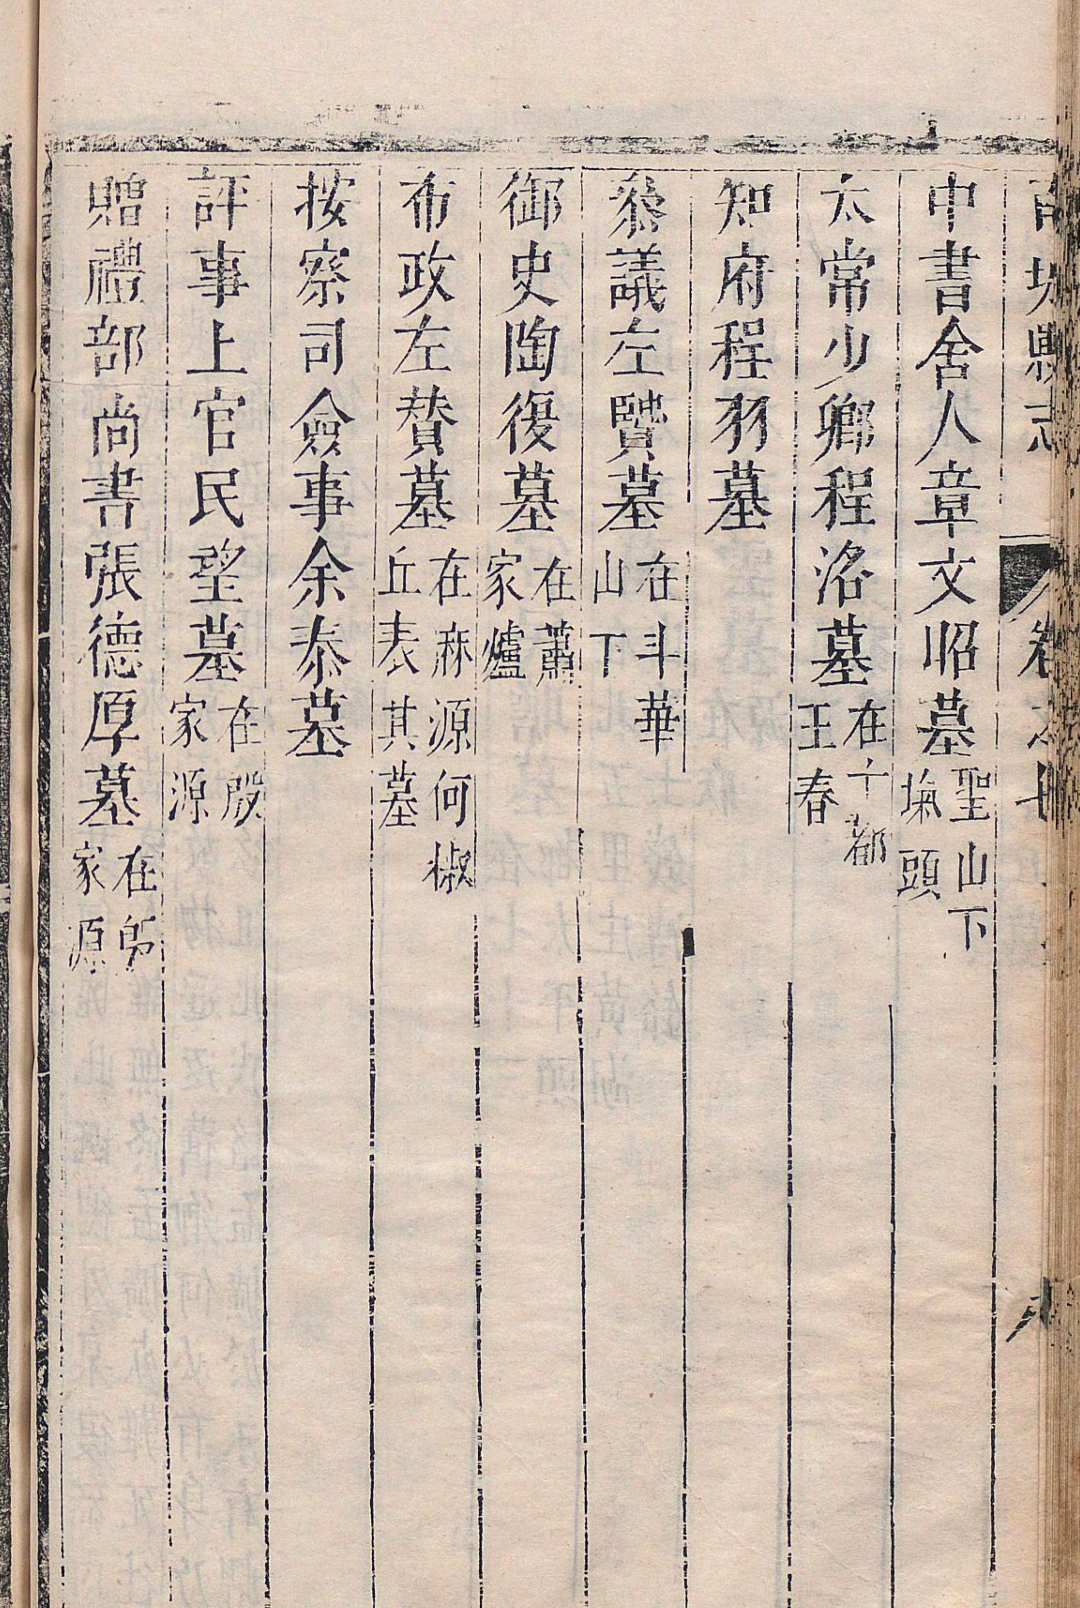 縣志 卷之
中書舍人章文昭墓聖山下墕頭
太常少卿程洛墓在十都王春
知府程羽墓
叅議左贒墓在斗華山下
御史陶復墓在蕭家爐
布政左賛墓在麻源何椒丘表其墓
按察司僉事余泰墓
評事上官民望墓在殷家源
贈禮部尚書張德厚墓在鄔家源